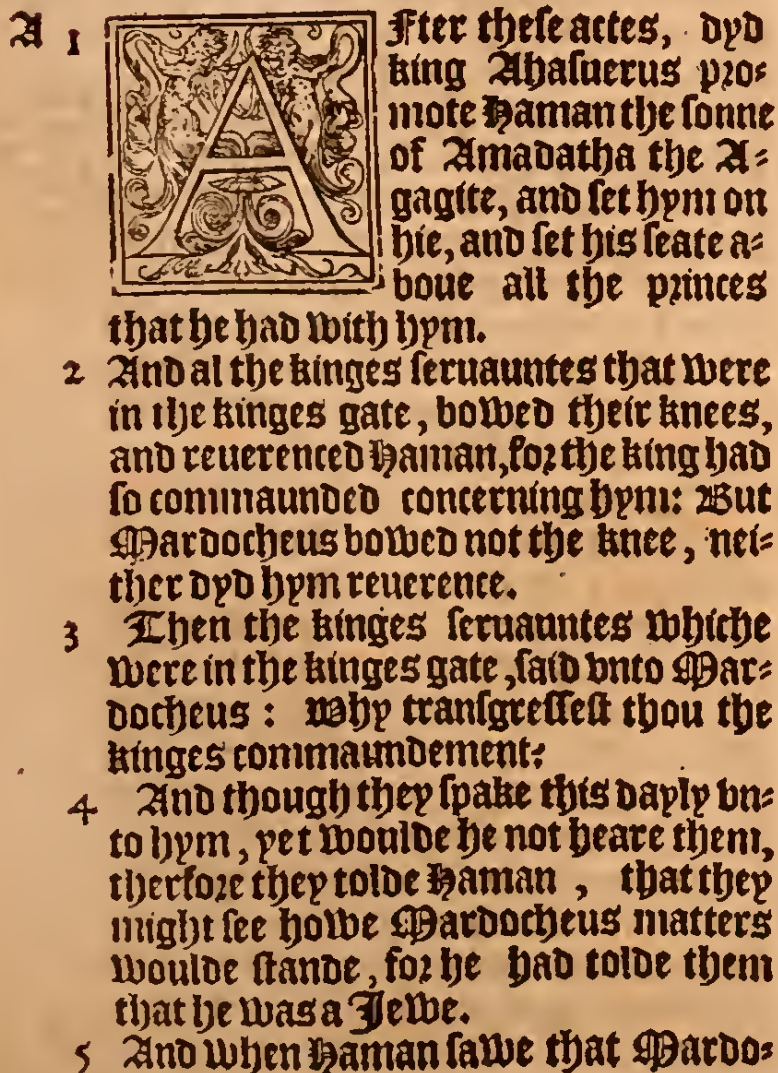 A 1 AFter theſe actes, dyd
king Ahaſuerus pro⸗
mote Haman the ſonne
of Amadatha the A⸗
gagite, and ſet hym on
hie, and ſet his ſeate a⸗
boue all the princes
that he had with hym.
2 And al the kinges ſeruauntes that were
in the kinges gate, bowed their knees,
and reuerenced Haman, for the king had
ſo commaunded concerning hym: But
Mardocheus bowed not the knee, nei⸗
ther dyd hym reuerence.
3 Then the kinges ſeruauntes whiche
were in the kinges gate, ſaid vnto Mar⸗
docheus: Why tranſgreſſeſt thou the
kinges commaundement?
4 And though they ſpake this dayly vn⸗
to hym, yet woulde he not heare them,
therfore they tolde Haman, that they
might ſee howe Mardocheus matters
woulde ſtande, for he had tolde them
that he was a Jewe.
5 And when Haman ſawe that Mardo⸗